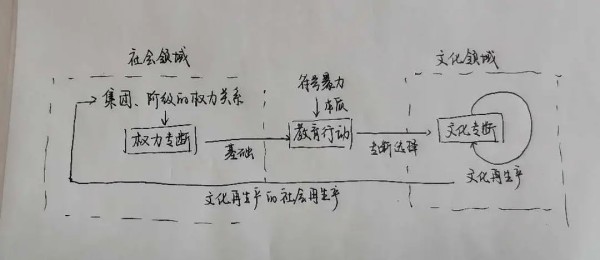 社会领域
文化领域
集团、阶级的权力关系
符号暴力
本质
权力专断
教育行动
文化专断
基础
专断选择
文化再生产
文化再生产的社会再生产